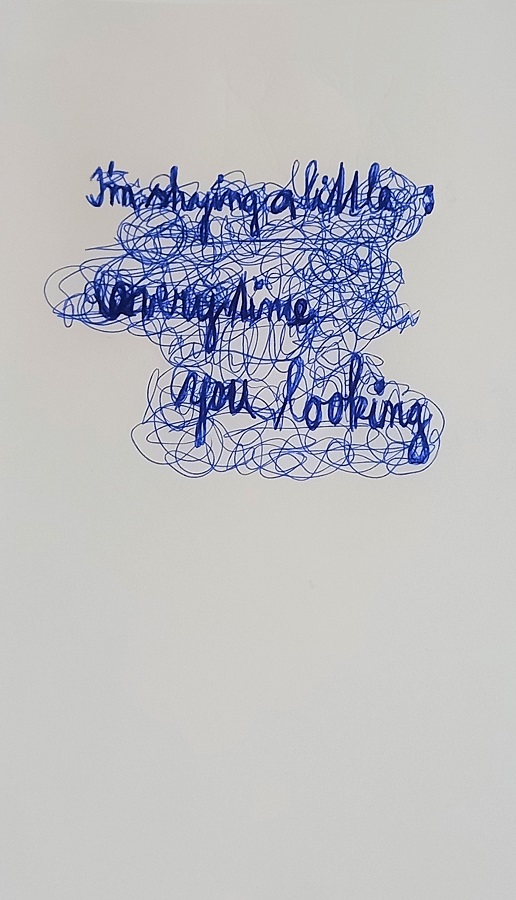 I'm shying a little :
every time
you looking